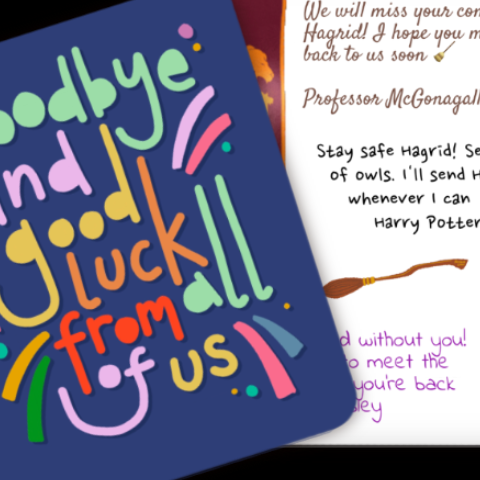 oodbye
nd
good
luck
from all
of us
We will miss your
Hagrid! I hope you
back to us soon
Professor
Stay safe Hagrid!
of owls. I'll send
whenever I can
Harry Potter
without you!
to meet the
you're back